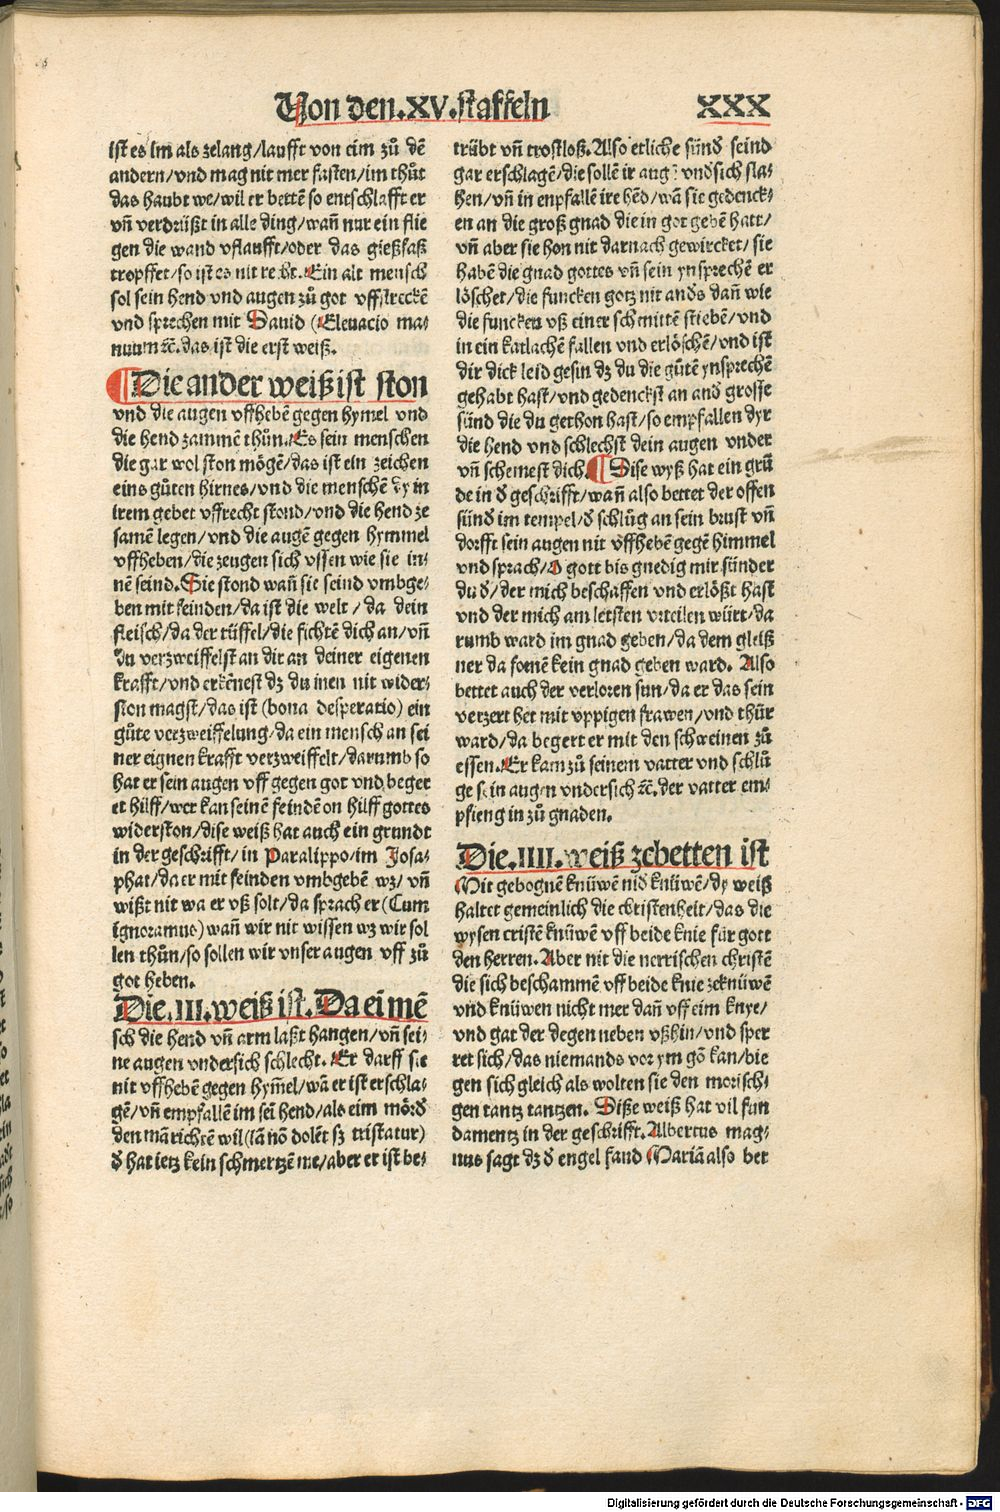 Von den.XV.staffeln XXX
ist es im als zelang/laufft von eim zů dē
andern/vnd mag nit mer fasten/im thůt
das haubt we/wil er bettē so entschlafft er
vn̄ verdrüßt in alle ding/wan̄ nur ein flie
gen die wand vflaufft/oder das gießfaß
tropffet/so ist es nit recht. Ein alt mensch
sol sein hend vnd augen zů got vffstreckē
vnd sprechen mit Dauid (Eleuacio ma⸗
nuum ⁊c. das ist die erst weiß.
Die ander weiß ist ston
vnd die augen vffhebē gegen hymel vnd
die hend zammē thůn. Es sein menschen
die gar wol ston mögē/das ist ein zeichen
eins gůten hirnes/vnd die menschē dy in
irem gebet vffrecht stond/vnd die hend ze
samē legen/vnd die augē gegen hymmel
vffheben/die zeugen sich vssen wie sie in⸗
nē seind. Sie stond wan̄ sie seind vmbge⸗
ben mit feinden/da ist die welt/da dein
fleisch/da der tüffel/die fichtē dich an/vn̄
du verzweiffelst an dir an deiner eigenen
krafft/vnd erkēnest dz du inen nit wider⸗
ston magst/das ist (bona desperatio) ein
gůte verzweiffelung/da ein mensch an sei
ner eignen krafft verzweiffelt/darumb so
hat er sein augen vff gegen got vnd beger
et hilff/wer kan seinē feindē on hilff gottes
widerston/dise weiß hat auch ein grundt
in der geschrifft/in Paralippo/im Josa⸗
phat/da er mit feinden vmbgebē wz/vn̄
wißt nit wa er vß solt/da sprach er (Cum
ignoramus) wan̄ wir nit wissen wz wir sol
len thůn/so sollen wir vnser augen vff zů
got heben.
Die.III.weiß ist. Da ei mē
sch die hend vn̄ arm laßt hangen/vn̄ sei⸗
ne augen vndersich schlecht. Er darff sie
nit vffhebē gegen hym̄el/wā er ist erschla⸗
gē/vn̄ empfallē im sei hend/als eim mörd
den mā richtē wil (iā nō dolēt sz tristatur)
d̕ hat ietz kein schmertzē me/aber er ist be⸗
trübt vn̄ trostloß. Also etliche sünd̕ seind
gar erschlagē/die sollē ir aug vnd̕sich sla⸗
hen/vn̄ in enpfallē ire hēd/wā sie gedenck⸗
en an die groß gnad die in got gebē hatt/
vn̄ aber sie hon nit darnach gewircket/sie
habē die gnad gottes vn̄ sein ynsprechē er
löschet/die funcken gotz nit and̕s dan̄ wie
die funcken vß einer schmittē stiebē/vnd
in ein katlachē fallen vnd erlöschē/vnd ist
dir dick leid gesin dz du die gůtē ynsprechē
gehabt hast/vnd gedenckst an and̕ grosse
sünd die du gethon hast/so empfallen dyr
die hend vnd schlechst dein augen vnder
vn̄ schemest dich. Dise wyß hat ein grū
de in d̕ geschrifft/wan̄ also bettet der offen
sünd̕ im tempel/d̕ schlůg an sein brust vn̄
dorfft sein augen nit vffhebē gegē himmel
vnd sprach/O gott bis gnedig mir sünder
du d̕/der mich beschaffen vnd erlößt hast
vnd der mich am letsten vrteilen würt/da
rumb ward im gnad geben/da dem gleiß
ner da fornē kein gnad geben ward. Also
bettet auch der verloren sun/da er das sein
verzert het mit vppigen frawen/vnd thür
ward/da begert er mit den schweinen zů
essen. Er kam zů seinem vatter vnd schlů
ge sein augen vndersich ⁊c. der vatter em⸗
pfieng in zů gnaden.
Die.IIII.weiß zebetten ist
Mit gebognē knüwen nid̕ knüwē/dy weiß
haltet gemeinlich die christenheit/das die
wysen cristē knüwē vff beide knie für gott
den herren. Aber nit die nerrischen christē
die sich beschammē vff beide knie zeknüwē
vnd knüwen nicht mer dan̄ vff eim knye/
vnd gat der degen neben vßhin/vnd sper
ret sich/das niemands vor ym gō kan/bie
gen sich gleich als wolten sie den morisch⸗
gen tantz tantzen. Diße weiß hat vil fun
damentz in der geschrifft. Albertus mag⸗
nus sagt dz d̕ engel fand Mariā also bet
Digitalisierung gefördert durch die Deutsche Forschungsgemeinschaft - DFG